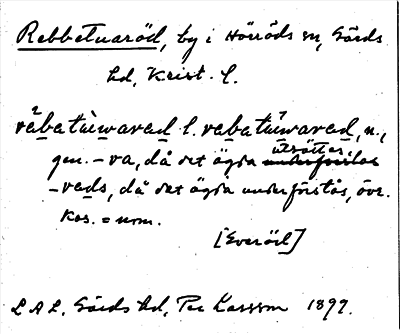 Rebbetuaröd, by i Hörröds sn, Gärds
hd, Krist. l.
räbatùwarad l. rabatùwarad, n.,
gen. -va, då det ägda utsättes,
-vads, då det ägda underförstås, övr.
kas. = nom.
[Everöd]
LAL, Gärds hd, Per Larsson 1897.